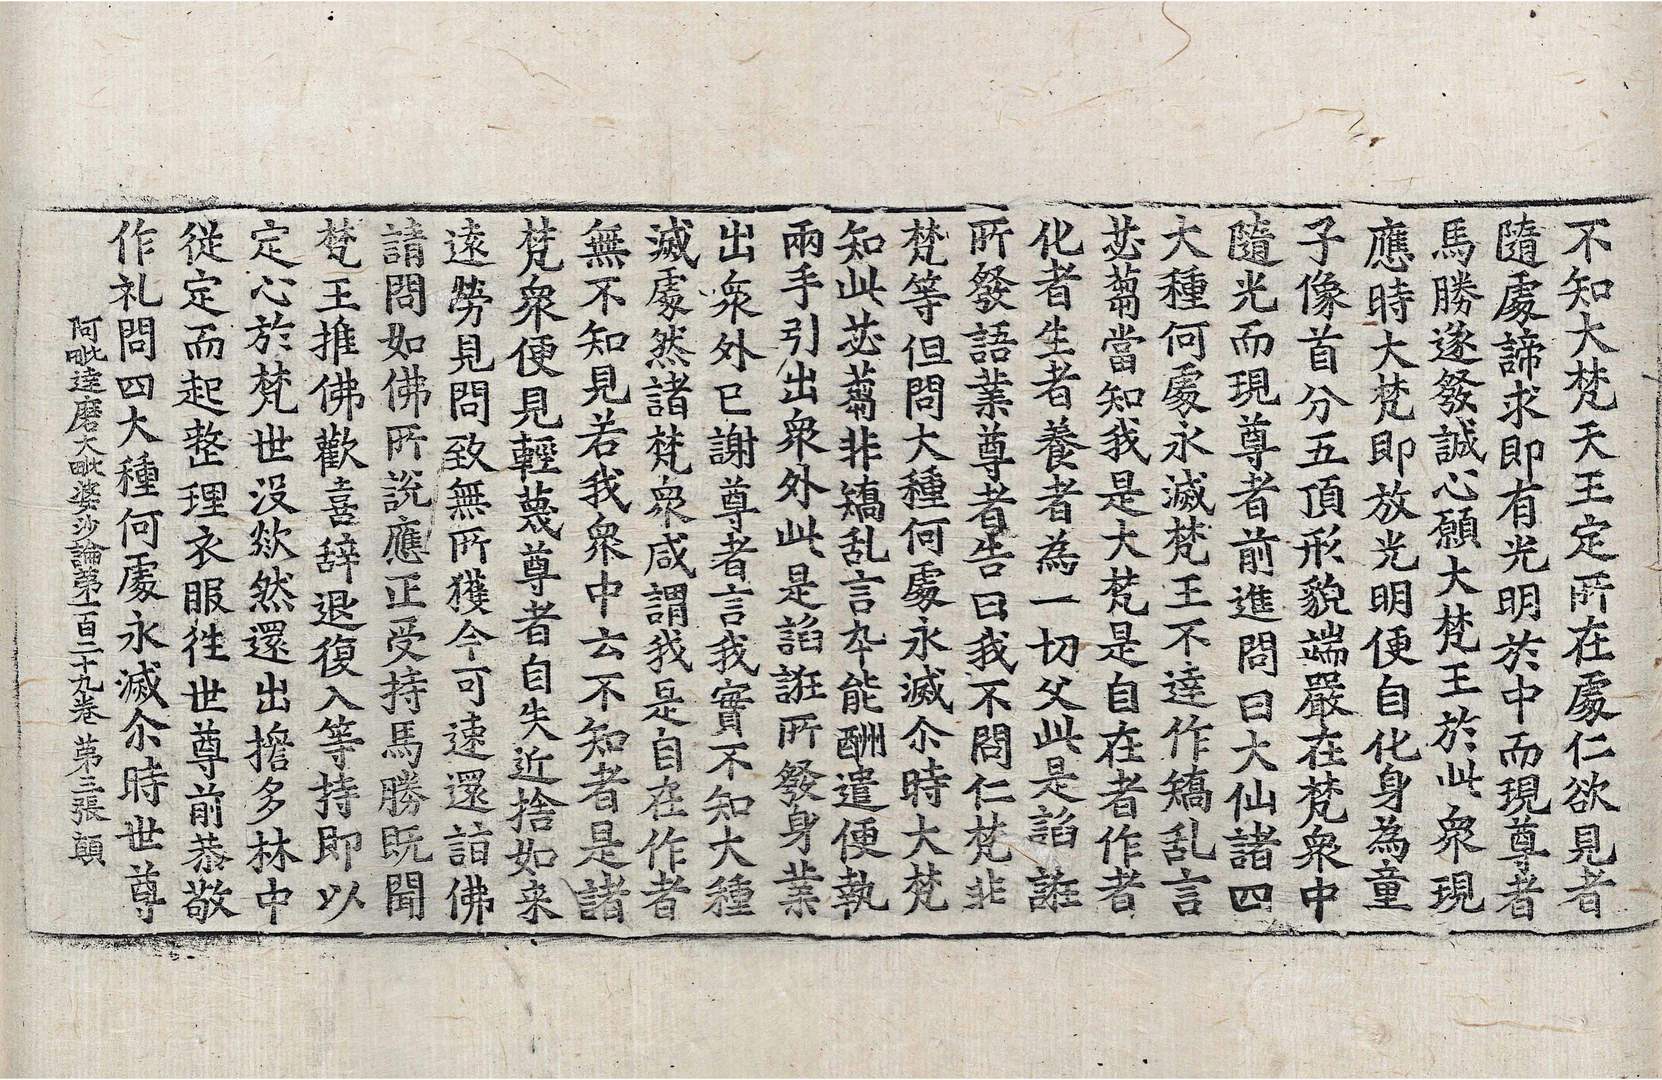 不知大梵天王定所在處仁欲見者
隨處諦求即有光明於中而現尊者
馬勝遂發誠心願大梵王於此衆現
應時大梵即放光明便自化身為童
子像首分五頂形貌端嚴在梵衆中
隨光而現尊者前進問曰大仙諸四
大種何處永滅梵王不達作矯乱言
苾蒭當知我是大梵是自在者作者
化者生者養者為一切父此是諂誑
所發語業尊者告曰我不問仁梵非
梵等但問大種何處永滅尒時大梵
知此苾蒭非矯乱言夲能酬遣便執
兩手引出衆外此是諂誑所發身業
出衆外已謝尊者言我實不知大種
滅處然諸梵衆咸謂我是自在作者
無不知見若我衆中云不知者是諸
梵衆便見輕蔑尊者自失近捨如来
遠勞見問致無所獲今可速還詣佛
請問如佛所説應正受持馬勝既聞
梵王推佛歡喜辞退復入等持即以
定心於梵世没欻然還出擔多林中
從定而起整理衣服徃世尊前恭敬
作礼問四大種何處永滅尒時世尊
阿毗達磨大毗婆沙論第一百二十九卷 第三張 顛